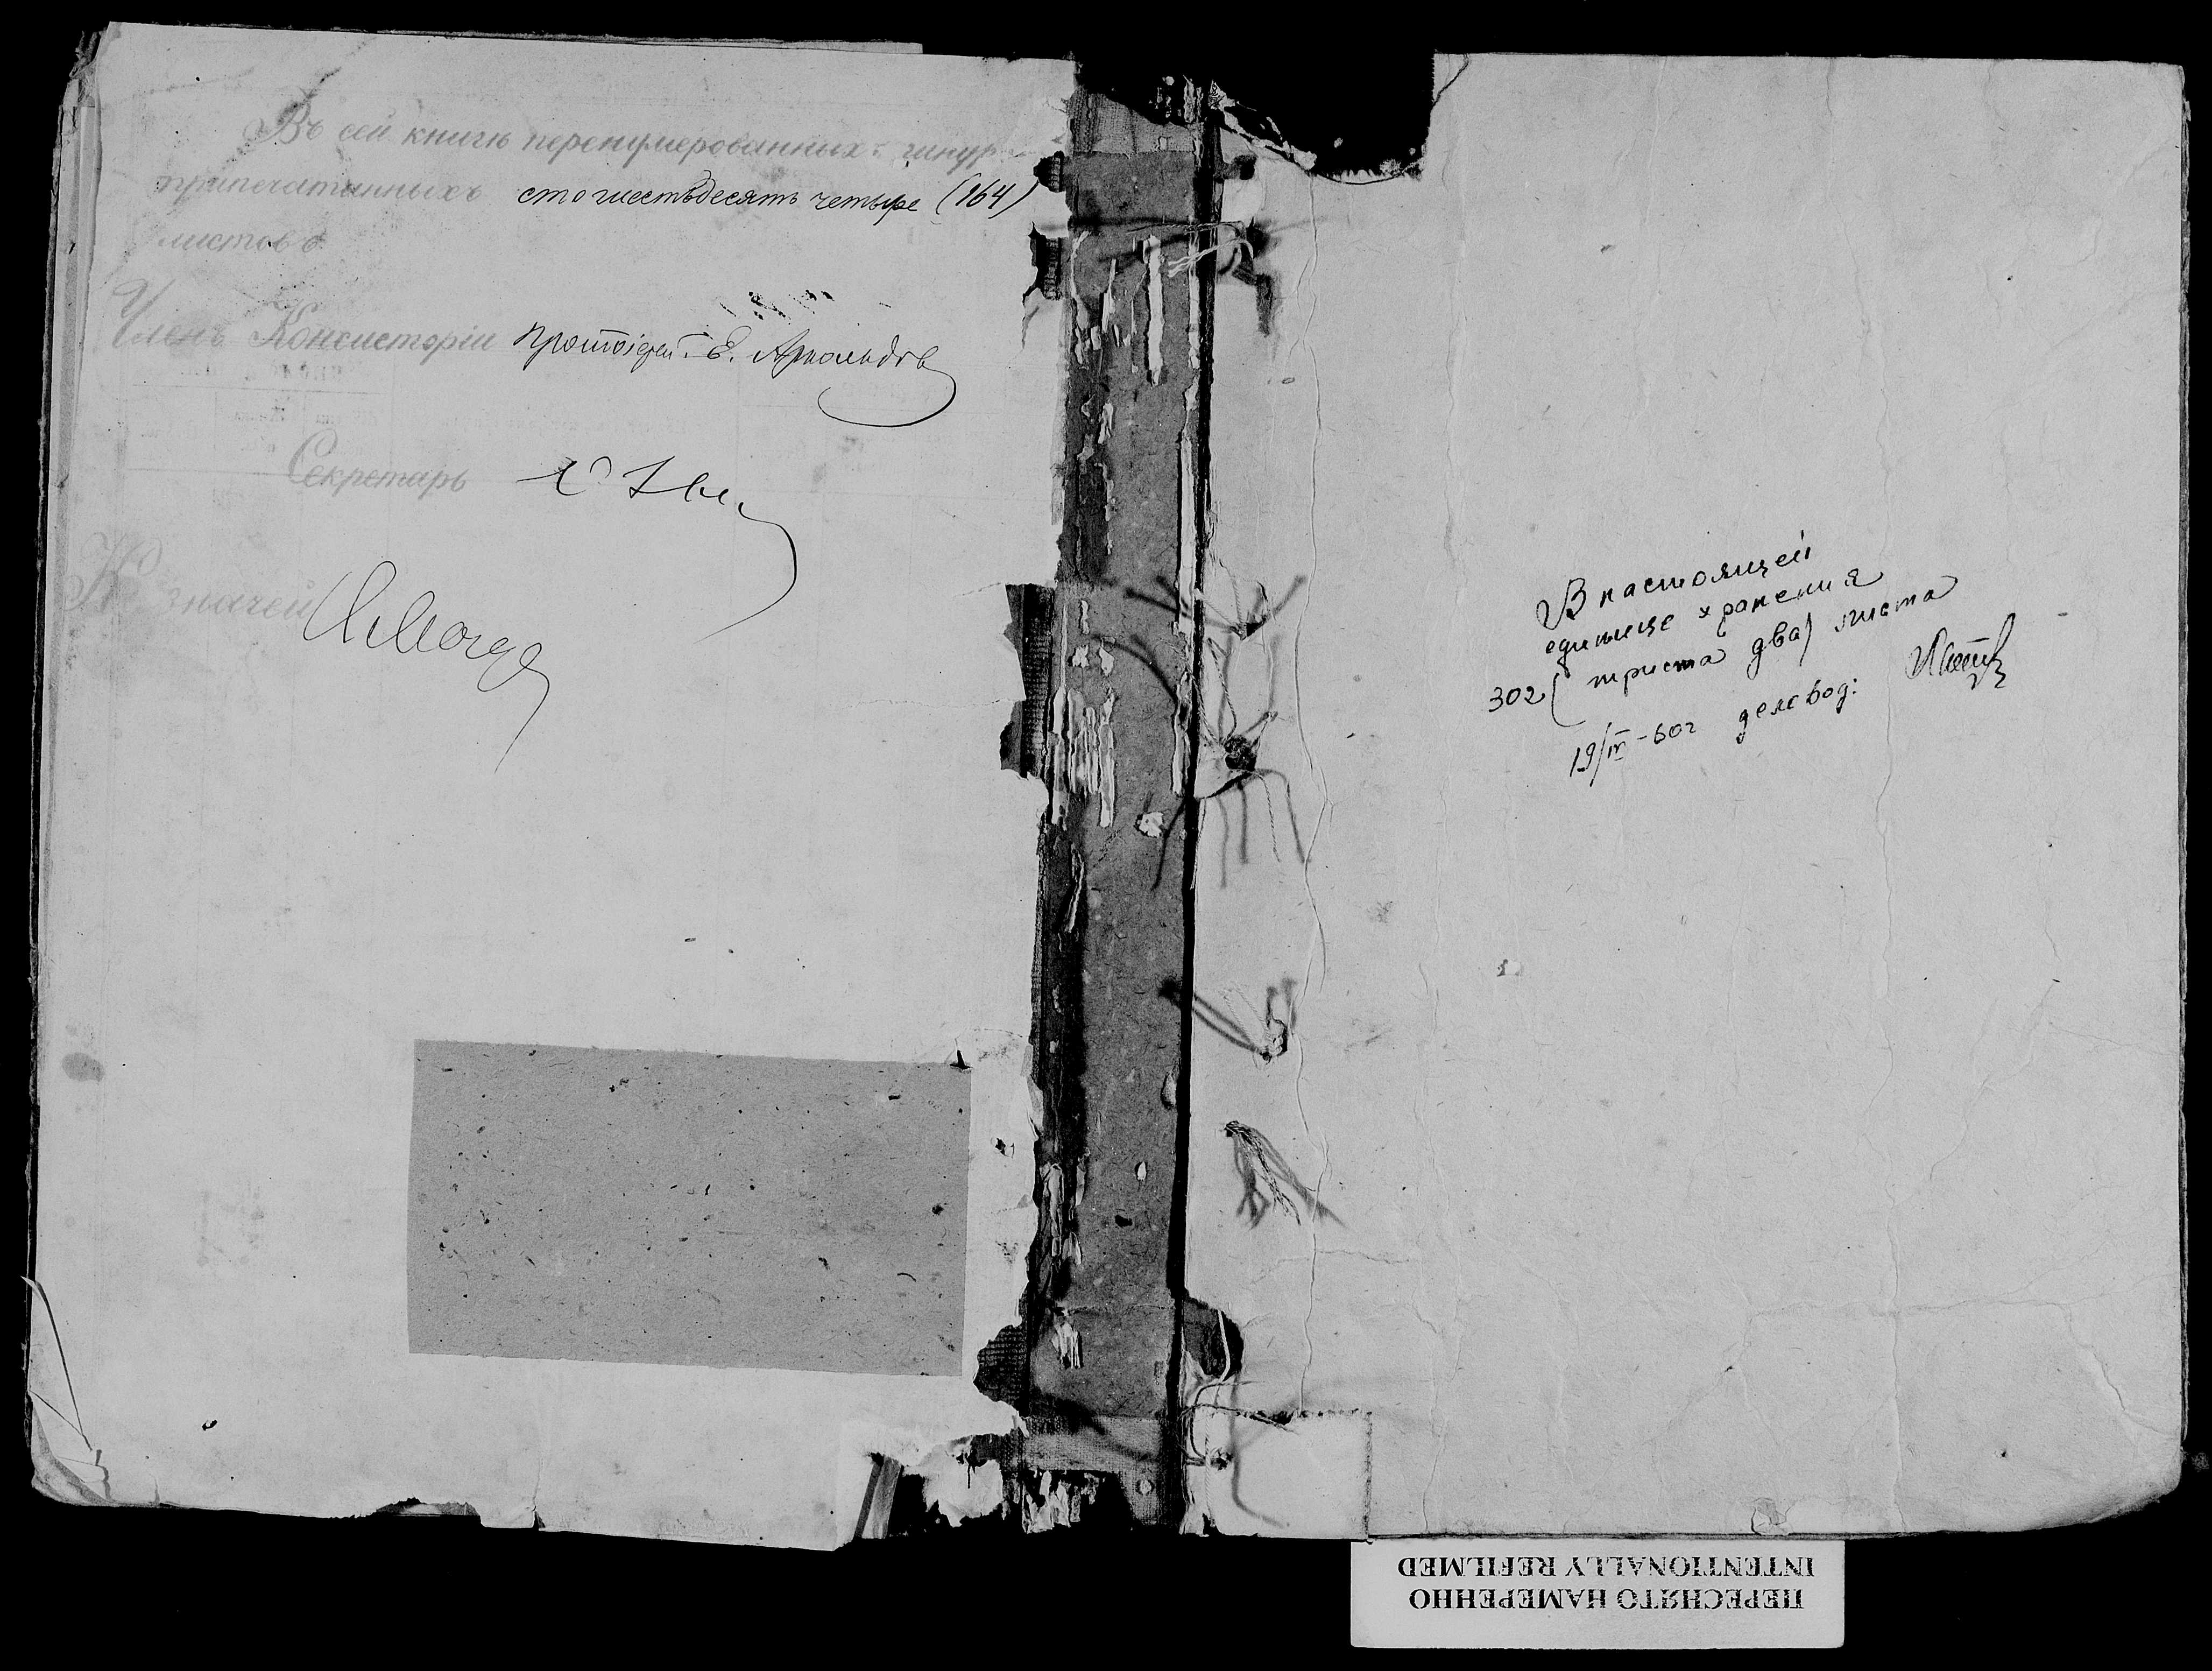 Въ сей книгѣ перенумерованныхъ
припечатанныхъ сто шестьдесятъ четыре (164)
листовъ
Членъ Консисторіи Протоіерей Е.
Секретарь
Казначей
В настоящей
единице хранения
302 (триста два) листа
19/IV-60г деловод:
ПЕРЕСНЯТО НАМЕРЕННО
INTENTIONALLY REFILMED